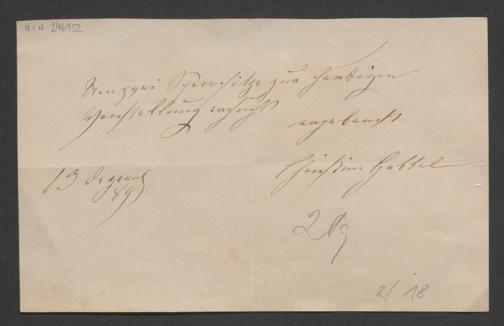 H.I.N. 246952
Um zwei Sperrsitze zur heutigen
Vorstellung ersucht
ergebenst
Christine Hebbel
13 Dezemb
89
2/ 18